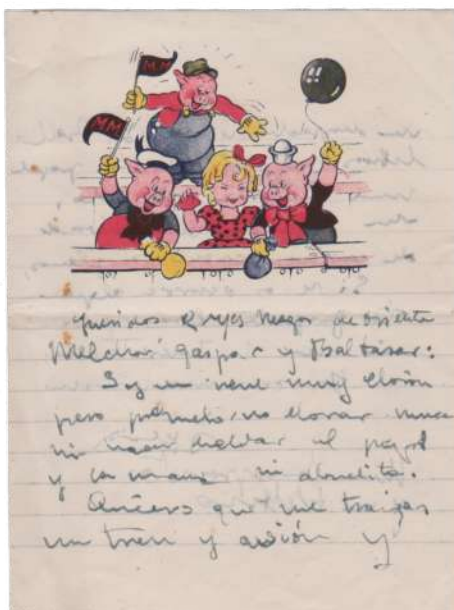 MM
MM
Queridos Reyes Magos de Oriente
Melchor, Gaspar y Baltasar:
Soy un nene muy llorón
pero prometo no llorar nunca
ni hacer al papá
y la mamá ni abuelita.
Quiero que me traigas
un tren y avión y